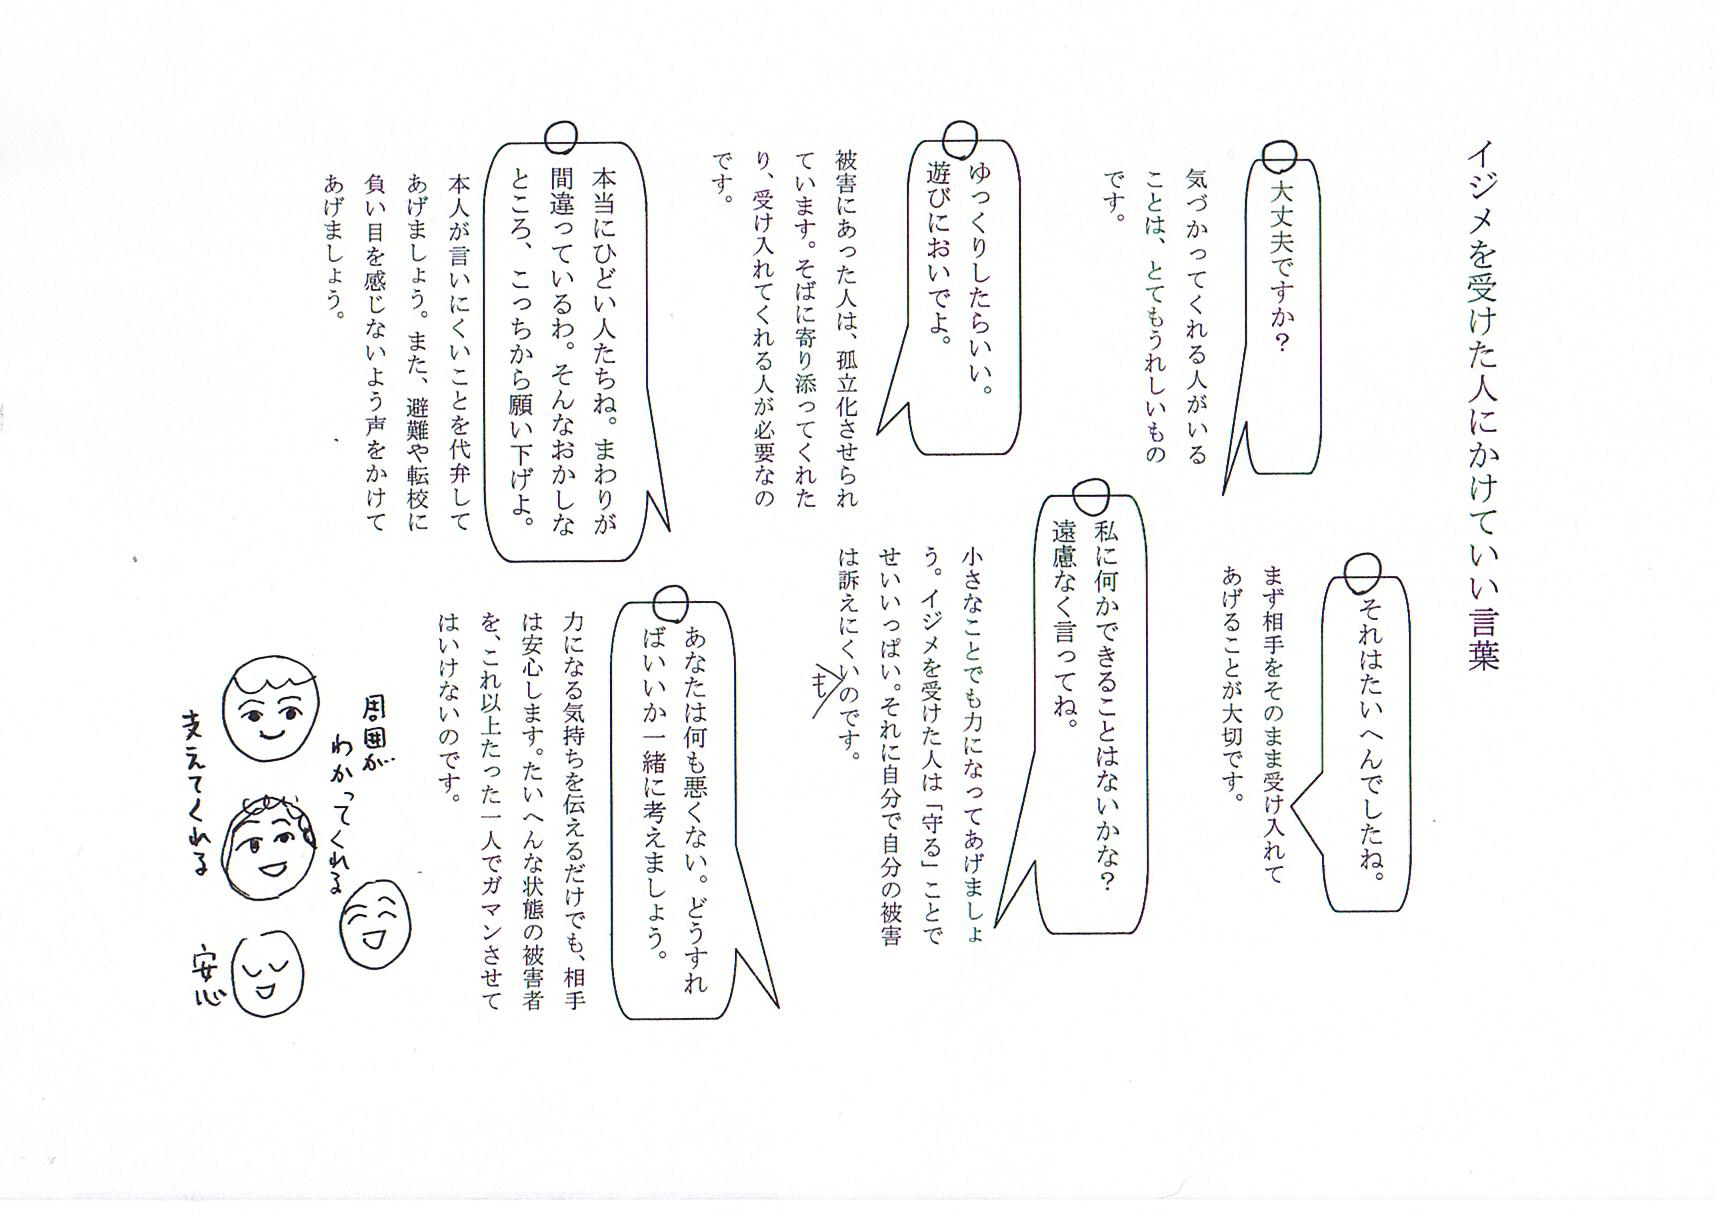 イジメを受けた人にかけていい言葉
大丈夫ですか？
気づかってくれる人がいる
ことは、とてもうれしいもの
です。
それはたいへんでしたね。
まず相手をそのまま受け入れて
あげることが大切です。
ゆっくりしたらいい。
遊びにおいでよ。
被害にあった人は、孤立化させられ
ています。そばに寄り添ってくれた
り、受け入れてくれる人が必要なの
です。
私に何かできることはないかな？
遠慮なく言ってね。
小さなことでも力になってあげましょ
う。イジメを受けた人は「守る」ことで
せいいっぱい。それに自分で自分の被害
は訴えにくいのです。
も
本当にひどい人たちね。まわりが
間違っているわ。そんなおかしな
ところ、こっちから願い下げよ。
本人が言いにくいことを代弁して
あげましょう。また、避難や転校に
負い目を感じないよう声をかけて
あげましょう。
あなたは何も悪くない。どうすれ
ばいいか一緒に考えましょう。
力になる気持ちを伝えるだけでも、相手
は安心します。たいへんな状態の被害者
を、これ以上たった一人でガマンさせて
はいけないのです。
周囲が
わかってくれる
支えてくれる
安心